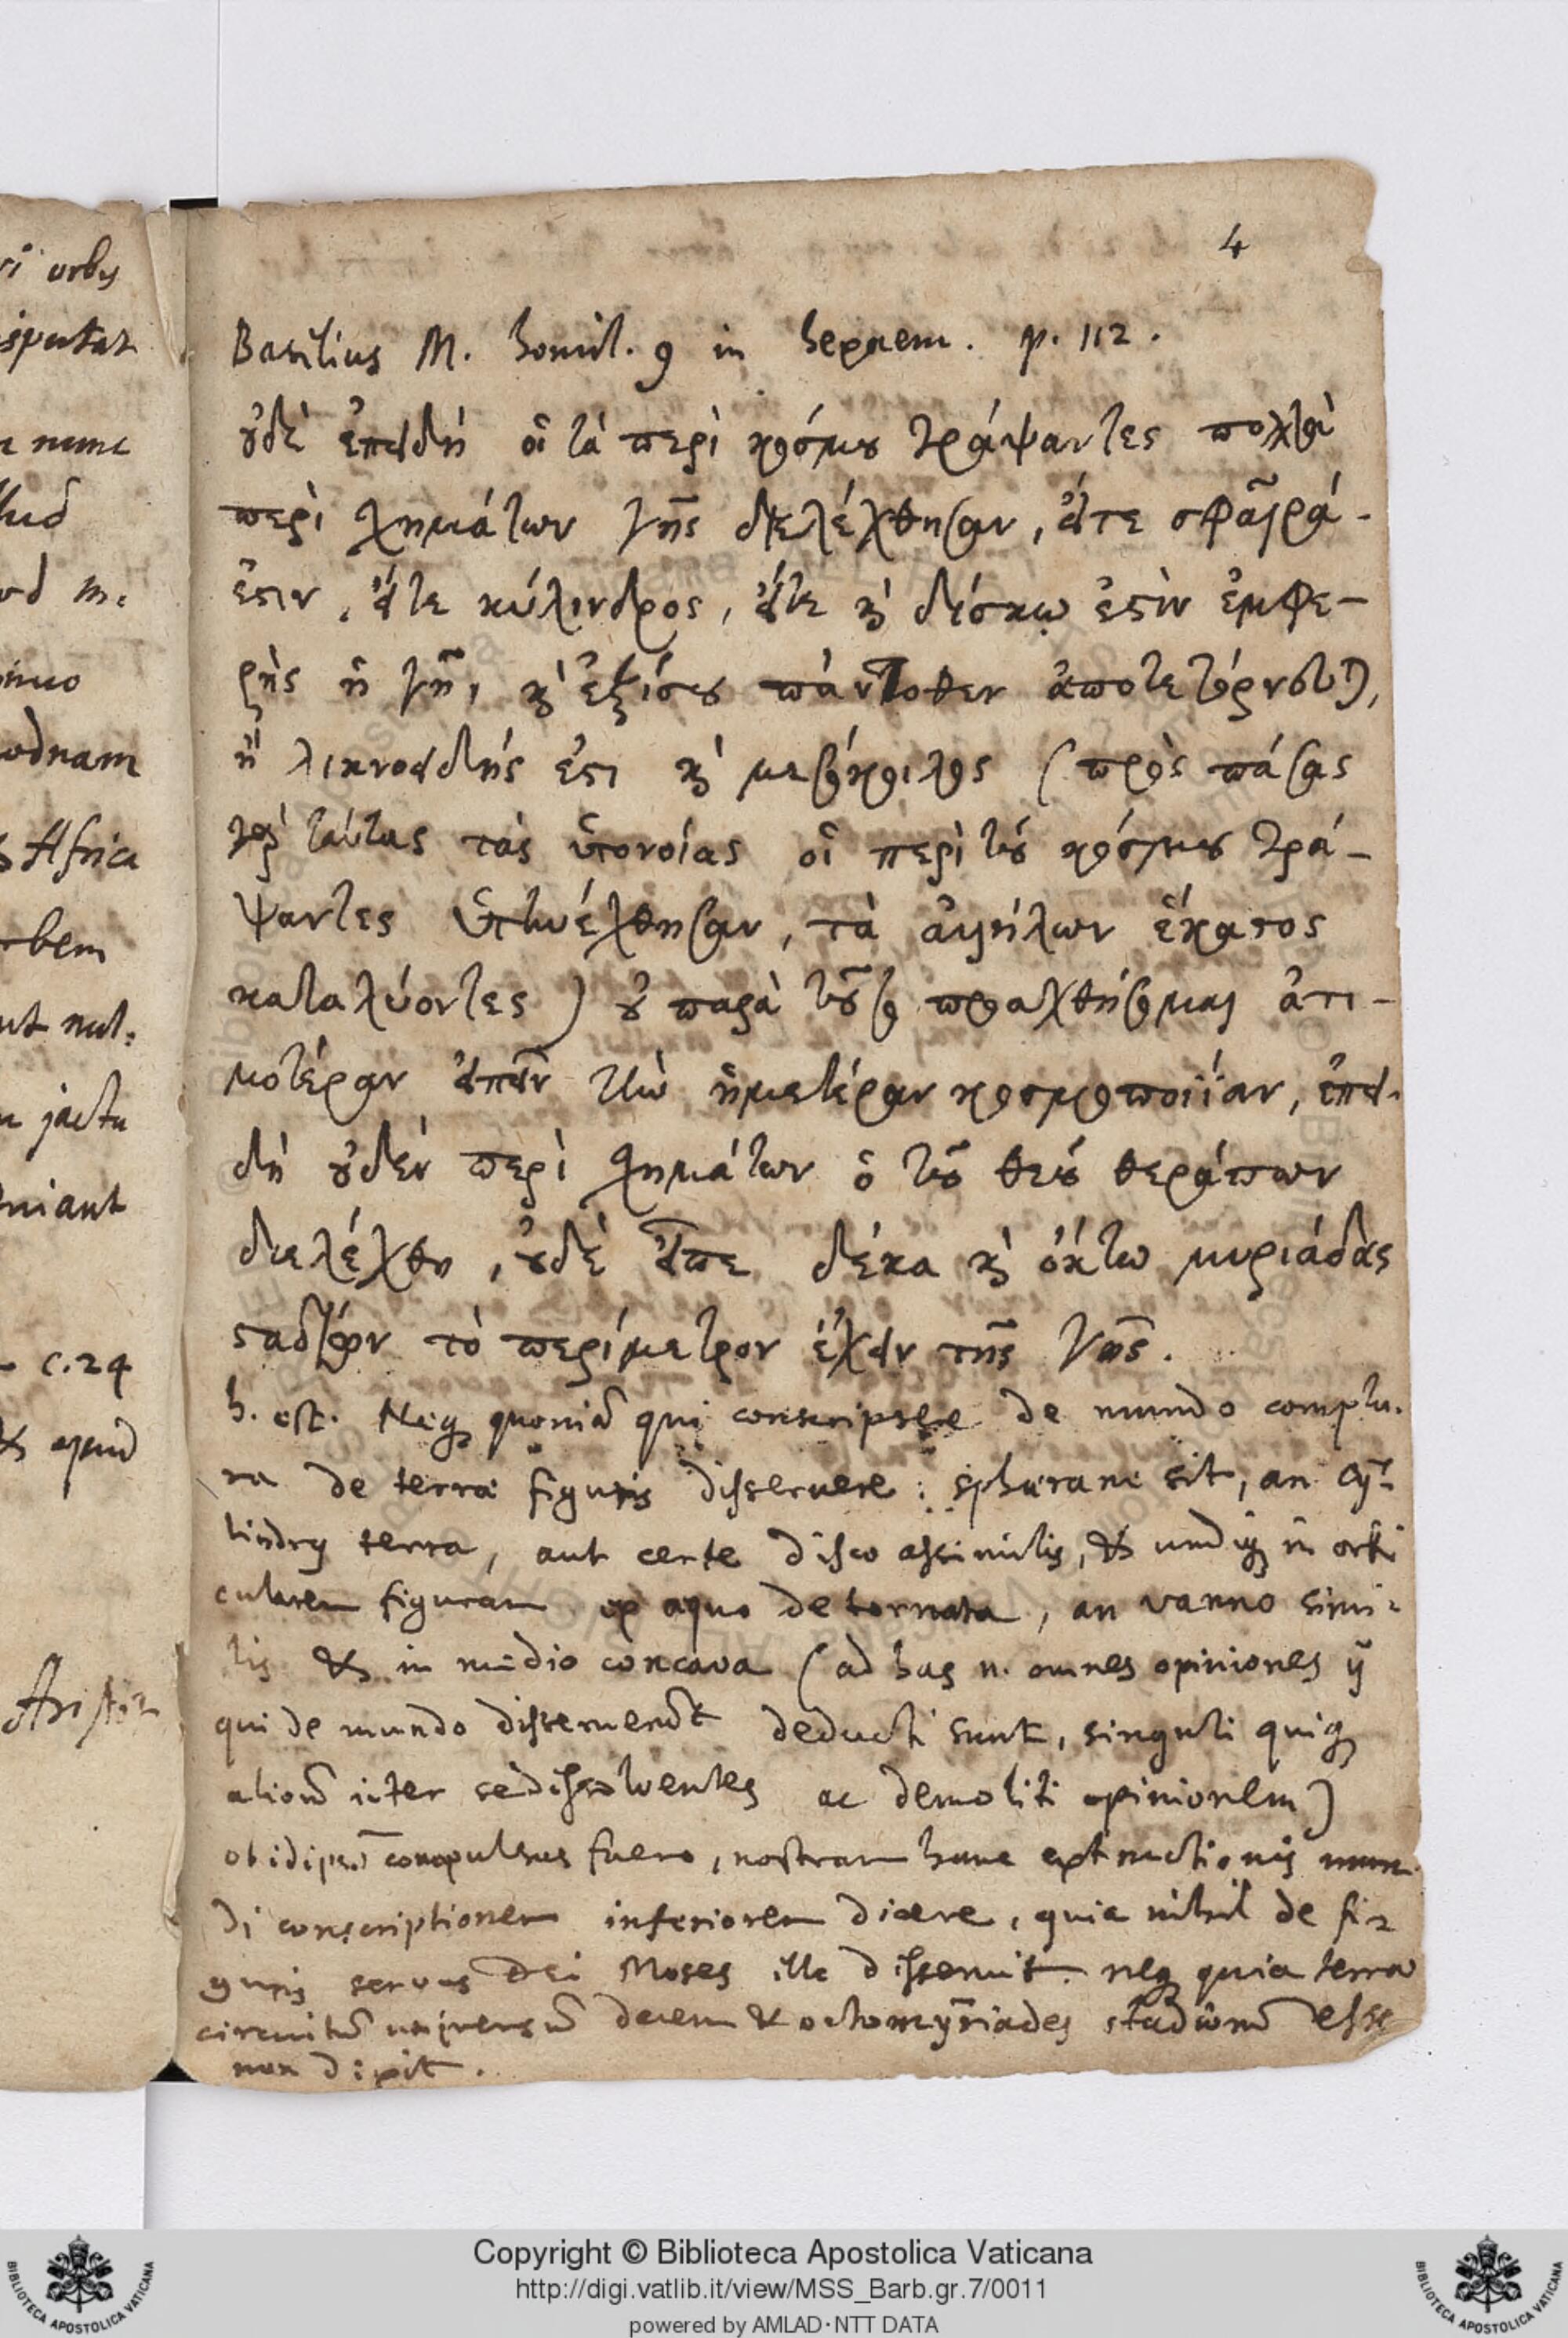 ri orbis
isputat
nunc
m.
odnam
Africa
rbem
ut nul:
jactu
niant
c. 24
& apud
4
Basilius M. homil. 9 in hexaem. p. 112.
οὐδὲ ἐπειδὴ οἱ τὰ περὶ κόσμου γράψαντες πολλὰ
περὶ σχημάτων γῆς διελέχθησαν, εἴτε σφαῖρά
ἐστιν, εἴτε κύλινδρος, εἴτε καὶ δίσκῳ ἐστὶν ἐμφε-
ρὴς ἡ γῆ, καὶ ἐξίσου πάντοθεν ἀποτετόρνευται,
ἢ λικνοειδής ἐστι καὶ μεσόκοιλος (πρὸς πάσας
γὰρ ταύτας τὰς ὑπονοίας οἱ περὶ τοῦ κόσμου γρά-
ψαντες ὑπηνέχθησαν, τὰ ἀλλήλων ἕκαστος
καταλύοντες) οὐ παρὰ τοῦτο προαχθήσομαι ἀτι-
μοτέραν εἰπεῖν τὴν ἡμετέραν κοσμοποιΐαν, ἐπει-
δὴ οὐδὲν περὶ σχημάτων ὁ τοῦ θεοῦ θεράπων
διελέχθη, οὐδὲ εἶπε δέκα καὶ ὀκτὼ μυριάδας
σταδίων τὸ περίμετρον ἔχειν τῆς γῆς.
h. est. Neq; quoniā qui conscripsere de mundo complu-
ra de terrae figuris disseruere: sphaerane sit, an cy-
lindrus terra, aut certe disco assimilis, & undiq; in orbi
cularem figuram ex aequo detornata, an vanno simi-
lis & in medio concava (ad has n. omnes opiniones ij
qui de mundo disseruerūt deducti sunt, singuli quiq;
aliorū inter se dissolventes ac demoliti opinionem)
ob id ipsū compulsus fuero, nostram hanc extructionis mun-
di conscriptionem inferiorem dicere, quia nihil de fi-
guris servus Dei Moses ille disseruit. neq; quia terrae
circuitū universū decem & octo myriades stadiorū esse
non dixit.
Copyright © Biblioteca Apostolica Vaticana
http://digi.vatlib.it/view/MSS_Barb.gr.7/0011
powered by AMLAD·NTT DATA
BIBLIOTECA APOSTOLICA VATICANA
BIBLIOTECA APOSTOLICA VATICANA